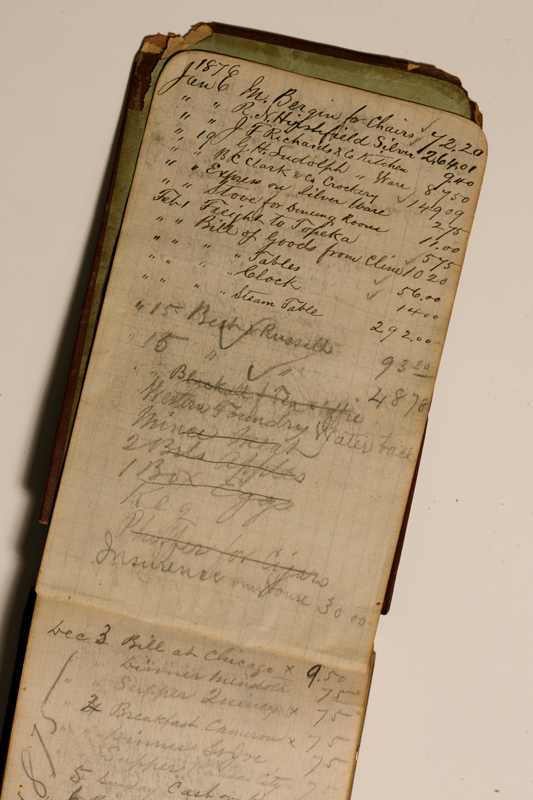 1876
Jan 6 M. Bergin for Chairs 72.20
" " R. N. Hirshfield Silver 264.01
" " J F Richards & Co Kitchen Ware 9.40
" 19 G. H. Ludolph " 87.50
" " B. C. Clark & Co Crockery 149.09
" " Express on Silver Ware 2 75
" " Stove for Dining Room 11.00
Feb 1 Freight to Topeka 5 75
" " Bill of Goods from Cline 10 20
" " " Tables 56.00
" " " Clock 14 00
" " " Steam Table 292.00
" 15 Burt & Russell 93.30
" 18 " " 48 78
Western Foundry Water back
Mince Meat
2 Bbls Apples
1 Box Eggs
Keg
for Cigars
Insurence on House 30 00
Dec 3 Bill at Chicago x 9.50
" Dinner Mendota 75
" Supper Quincy x 75
" 4 Breakfast Cameron x 75
" Dinner St Joe 75
" Supper Kansas City 75
5 Sunday Cash on
187